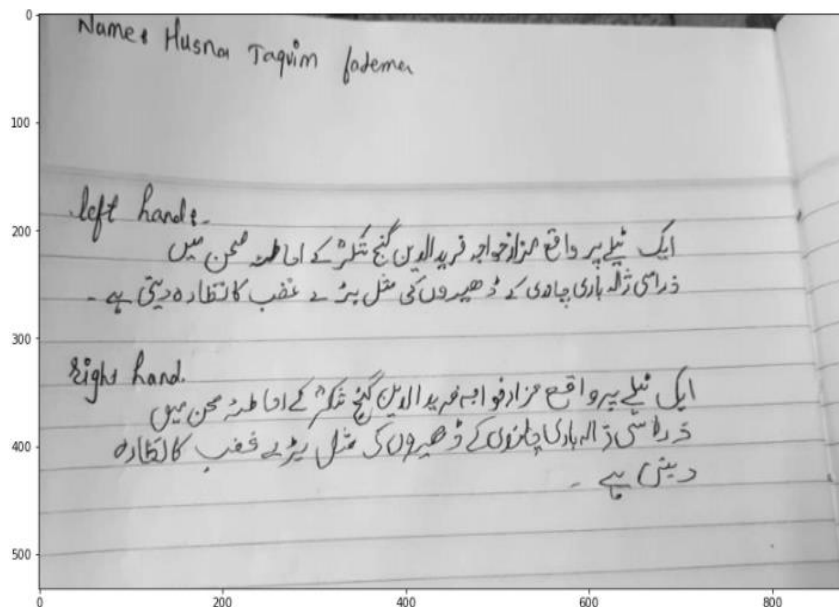 Name: Husna Taqvim fatema
left hand:-
ایک ٹیلے پر واقع مزار خواجہ فرید الدین گنج شکرؒ کے احاطہ صحن میں
ذرا سی ژالہ باری چاندی کے ڈھیروں کی مثل بڑے غضب کا نظارہ دیتی ہے ۔
right hand.
ایک ٹیلے پر واقع مزار خواجہ فرید الدین گنج شکرؒ کے احاطہ صحن میں
ذرا سی ژالہ باری چاندی کے ڈھیروں کی مثل بڑے غضب کا نظارہ
دیتی ہے ۔
0
100
200
300
400
500
0 200 400 600 800